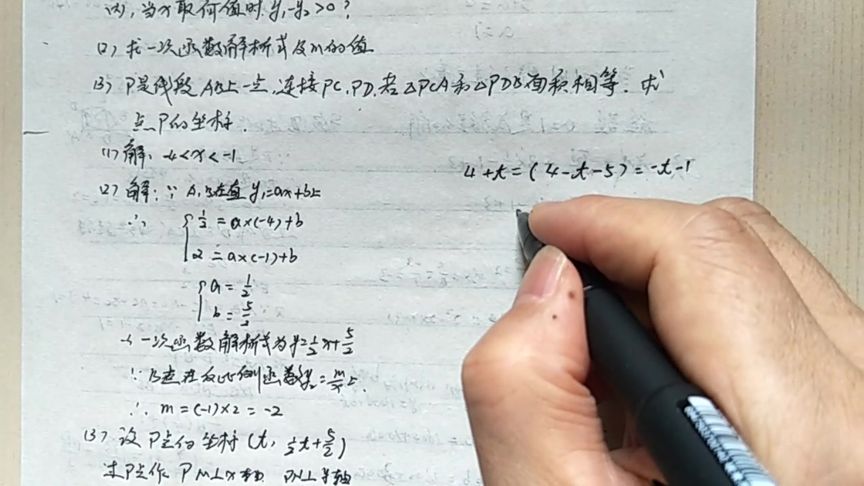 (1),当x取何值时,y₁-y₂>0?
(2),求一次函数解析式及m的值
(3) P是线段AB上一点,连接PC,PD,若△PCA和△PDB面积相等,求
点P的坐标.
(1)解:-4<x<-1
4+t=(4-t-5)=-t-1
(2)解:∵A,B在直y₁=ax+b上
∴{½=a×(-4)+b
2=a×(-1)+b
{a=½
b=5/2
∴一次函数解析式为y=½x+5/2
∵B点在反比例函数y₂=m/x上
∴m=(-1)×2=-2
(3)设P点的坐标(t,½t+5/2)
过P点作PM⊥x轴 PN⊥y轴